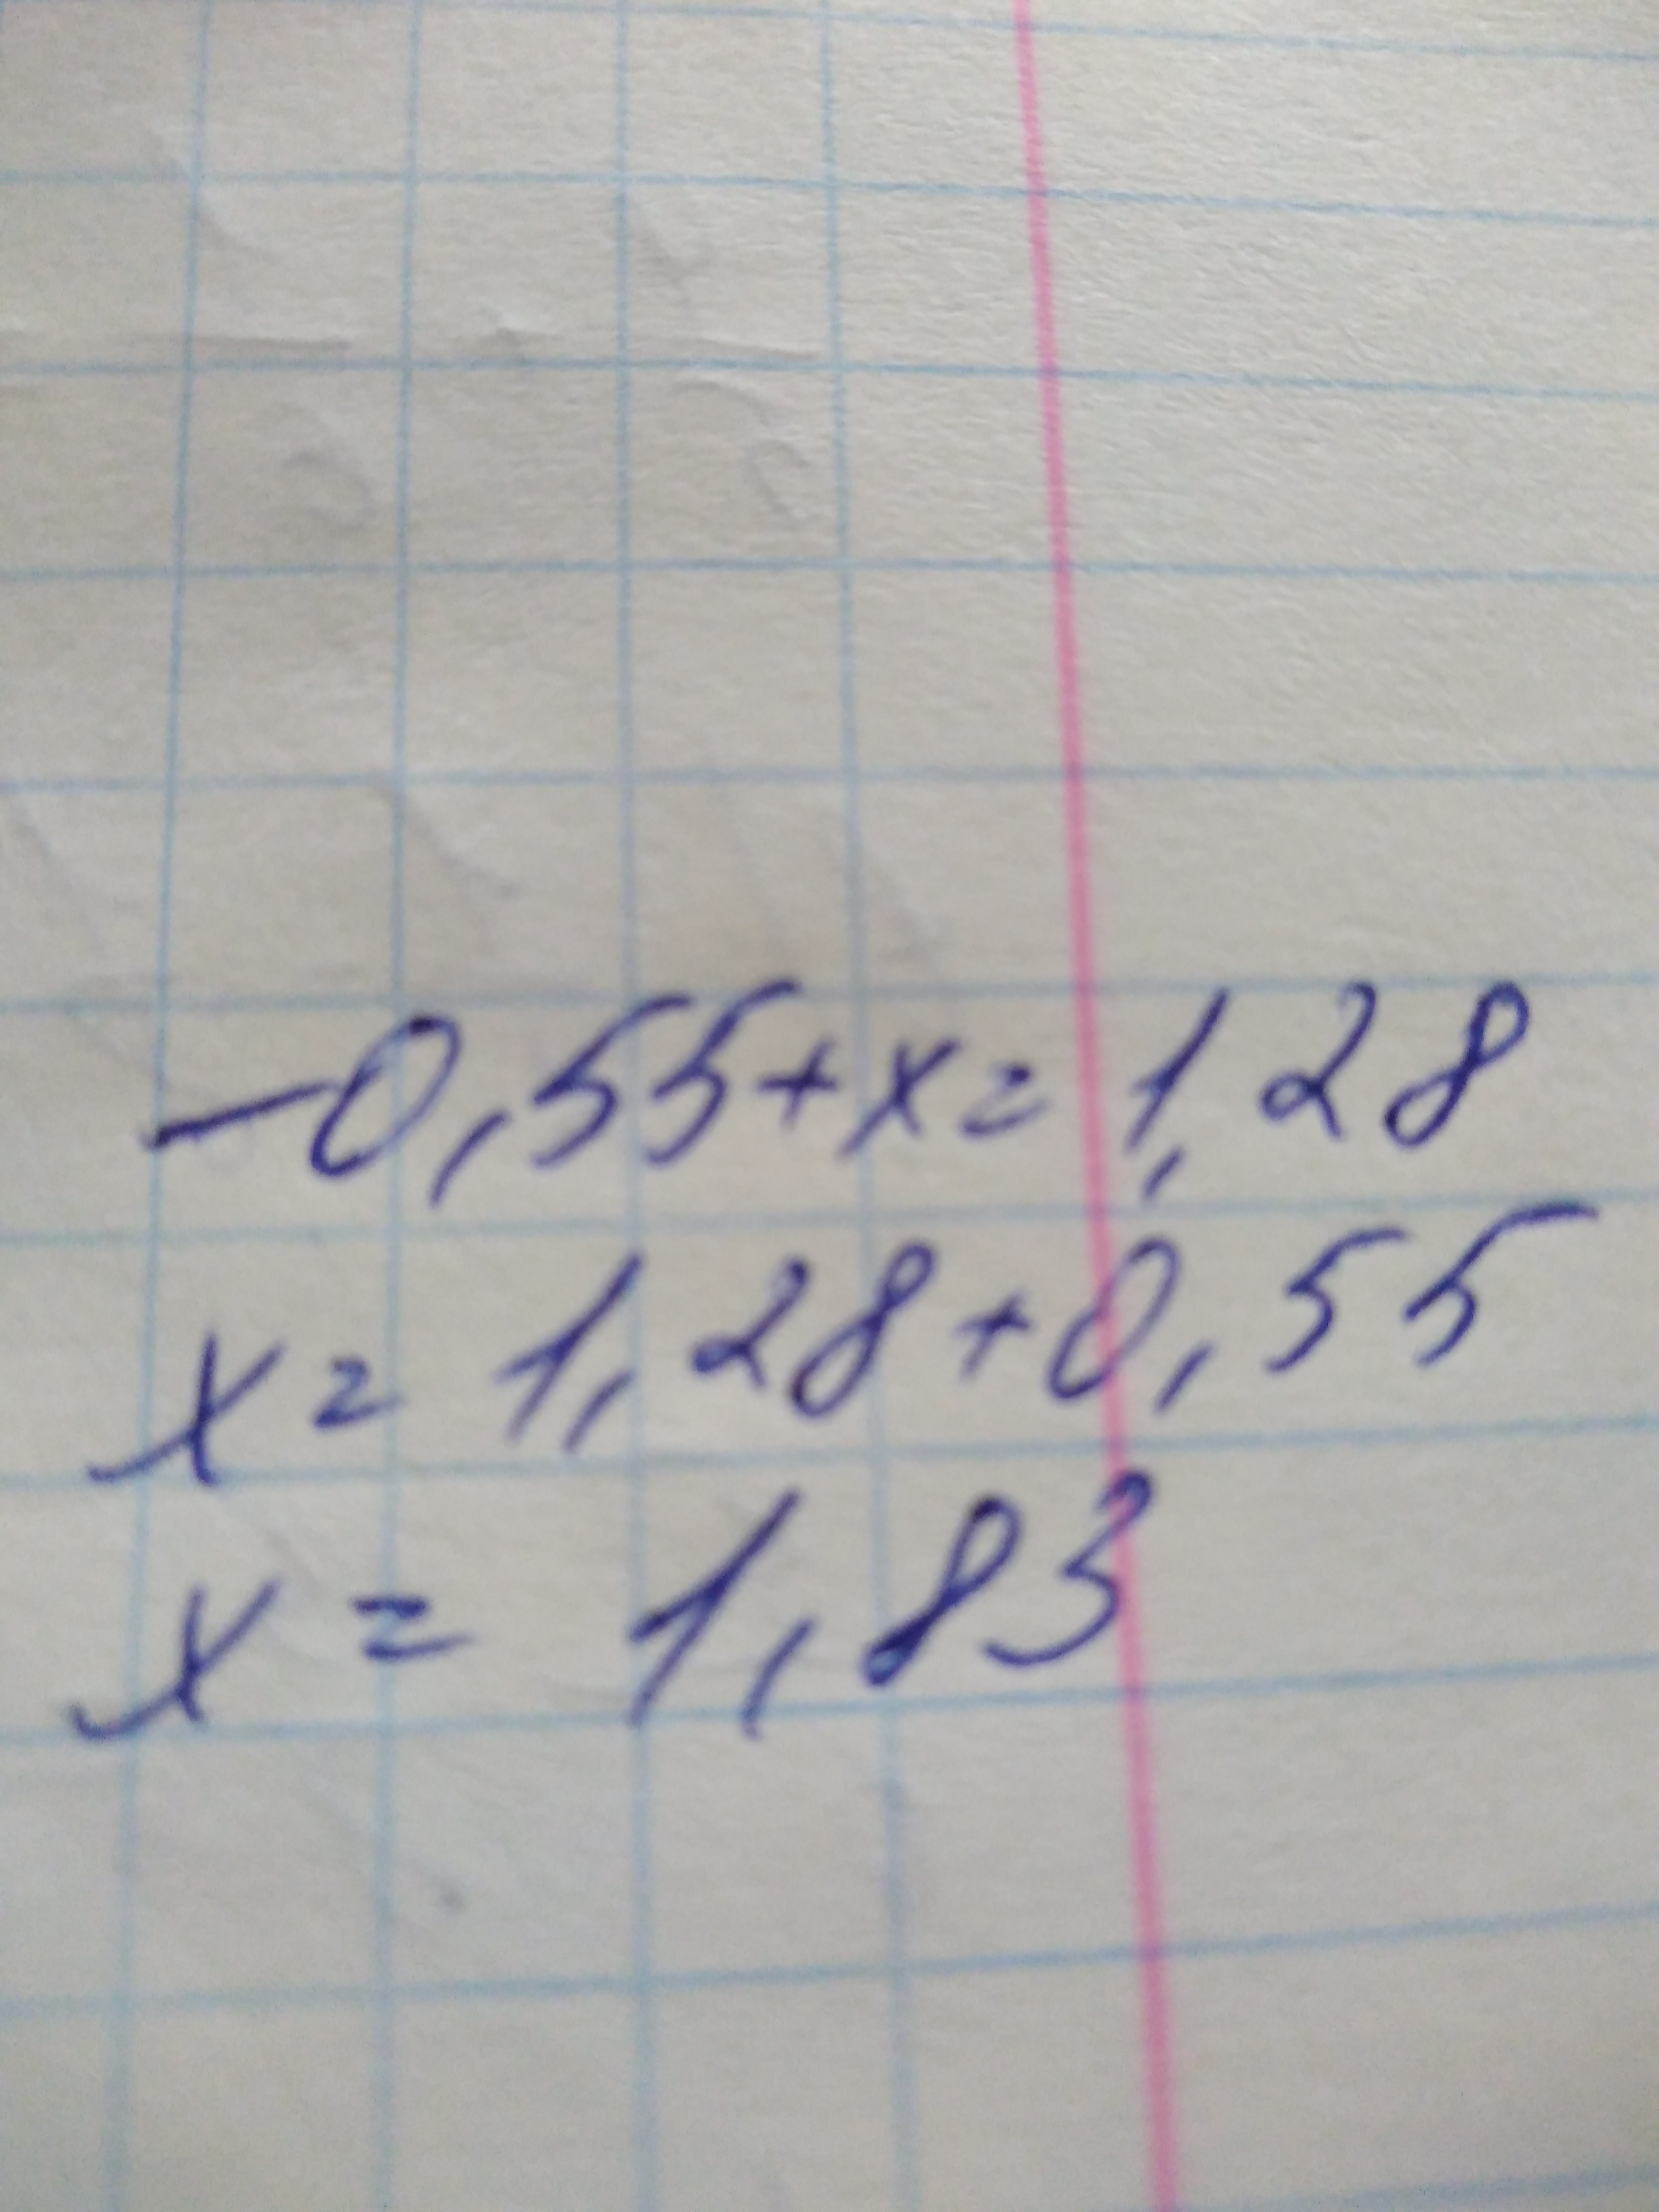 -0,55+x=1,28
x=1,28+0,55
x=1,83